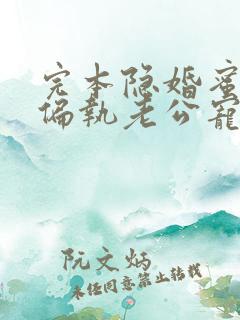 完本隐婚蜜
偏执老公宠
阮文炳
未经同意禁止转载